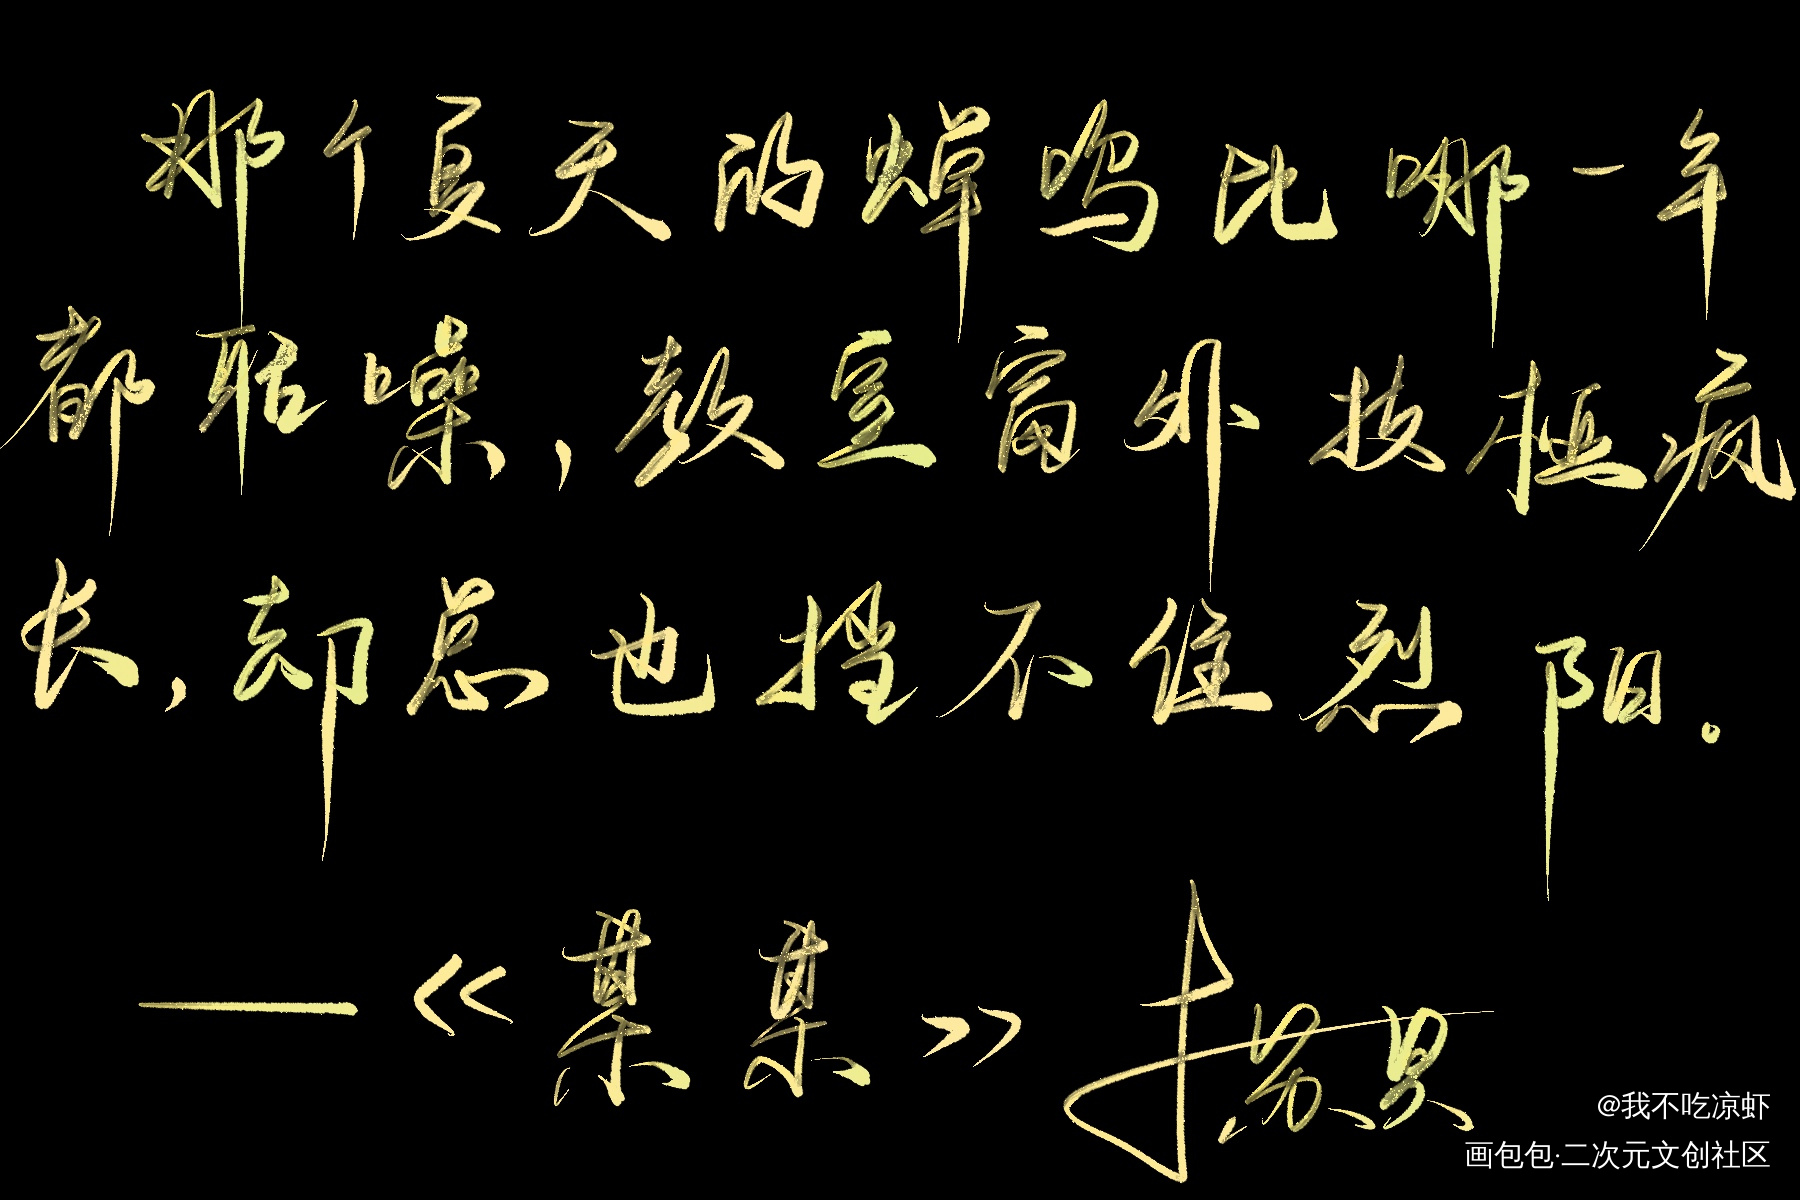 那个夏天的蝉鸣比哪一年
都聒噪，教室窗外枝桠疯
长，却总也挡不住烈阳。
—《某某》木苏里
@我不吃凉虾
画包包·二次元文创社区